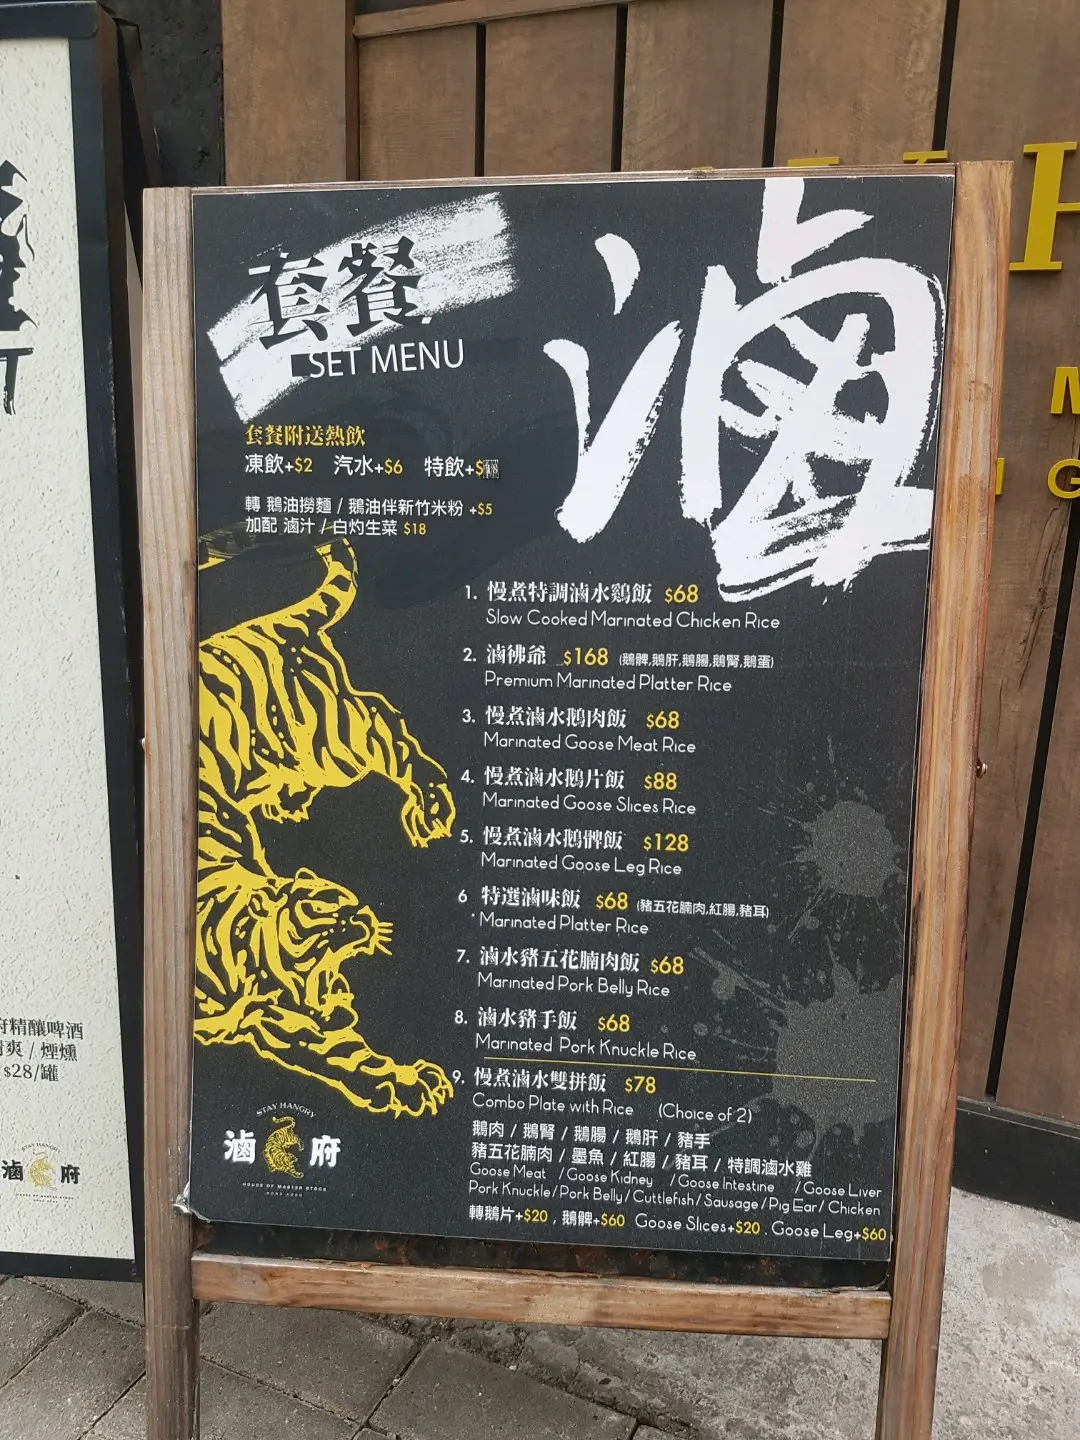 套餐
SET MENU
滷
套餐附送熱飲
凍飲+$2 汽水+$6 特飲+
轉 鵝油撈麵 / 鵝油伴新竹米粉 +$5
加配 滷汁 / 白灼生菜 $18
1. 慢煮特調滷水鷄飯 $68
Slow Cooked Marinated Chicken Rice
2. 滷彿爺 $168 (鵝髀,鵝肝,鵝腸,鵝腎,鵝蛋)
Premium Marinated Platter Rice
3. 慢煮滷水鵝肉飯 $68
Marinated Goose Meat Rice
4. 慢煮滷水鵝片飯 $88
Marinated Goose Slices Rice
5. 慢煮滷水鵝髀飯 $128
Marinated Goose Leg Rice
6. 特選滷味飯 $68 (豬五花腩肉,紅腸,豬耳)
Marinated Platter Rice
7. 滷水豬五花腩肉飯 $68
Marinated Pork Belly Rice
8. 滷水豬手飯 $68
Marinated Pork Knuckle Rice
9. 慢煮滷水雙拼飯 $78
Combo Plate with Rice (Choice of 2)
鵝肉 / 鵝腎 / 鵝腸 / 鵝肝 / 豬手
豬五花腩肉 / 墨魚 / 紅腸 / 豬耳 / 特調滷水雞
Goose Meat /Goose Kidney /Goose Intestine /Goose Liver
Pork Knuckle/Pork Belly/Cuttlefish/Sausage/Pig Ear/Chicken
轉鵝片+$20 , 鵝髀+$60 Goose Slices+$20 . Goose Leg+$60
STAY HANGRY
滷 府
HOUSE OF MASTER STOCK
HONG KONG
府精釀啤酒
爽 / 煙燻
$28/罐
STAY HANGRY
滷 府
H
M
G